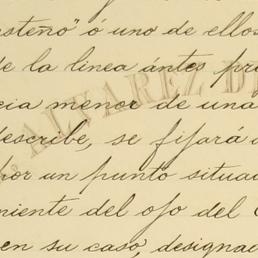 steño" ó uno de ellos
de la linea ántes pre
cia menor de una
describe, se fijará
por un punto situad
niente del ojo del
en su caso, designa
ALVAREZ D